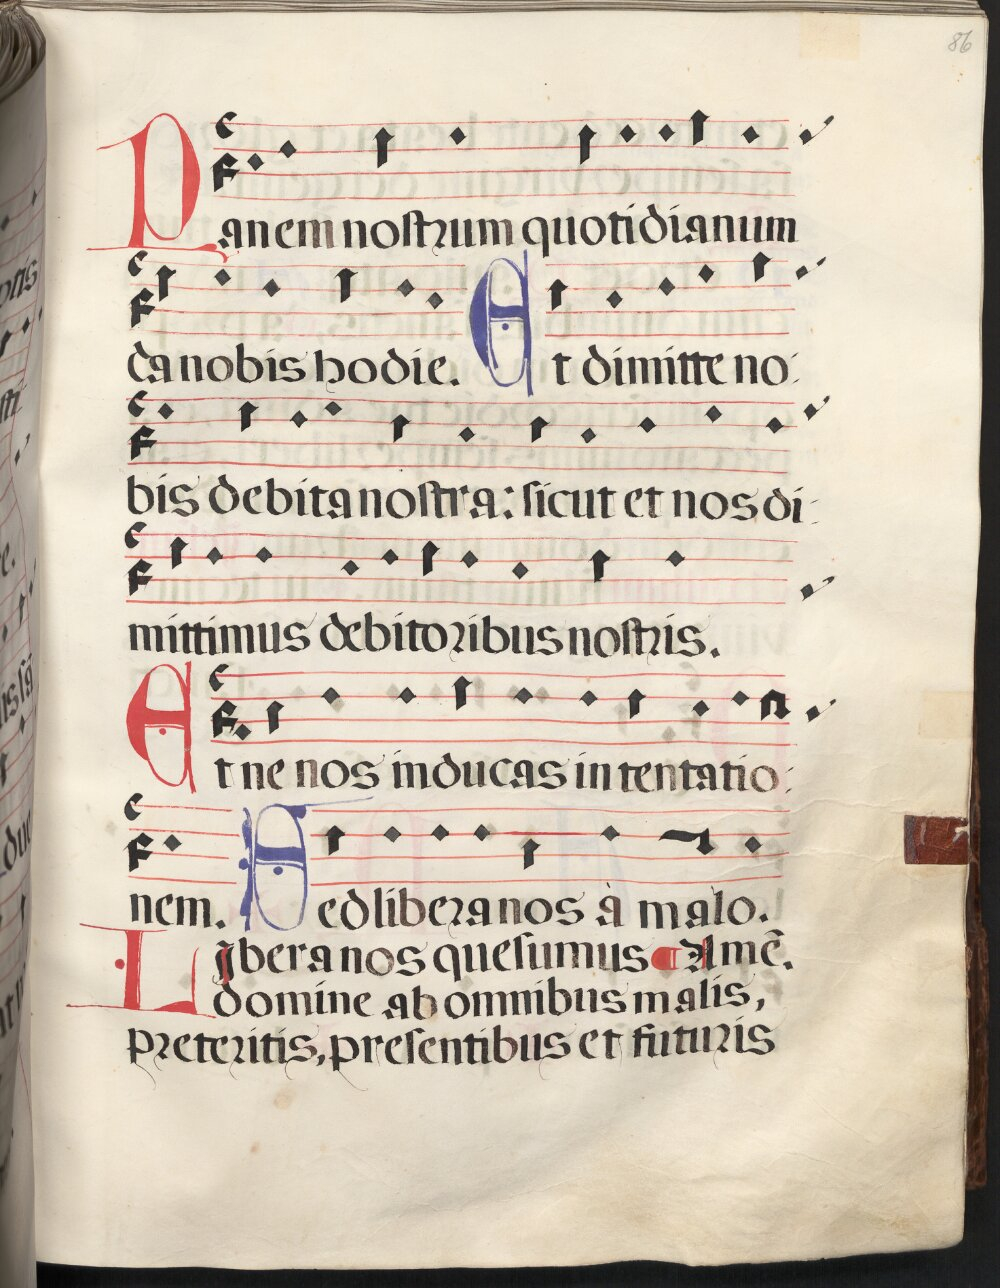 86
Panem nostrum quotidianum
da nobis hodie. Et dimitte no:
bis debita nostra: sicut et nos di:
mittimus debitoribus nostris.
Et ne nos inducas in tentatio:
nem. Sed libera nos à malo.
Libera nos quesumus Amē.
domine ab omnibus malis,
preteritis, presentibus et futuris